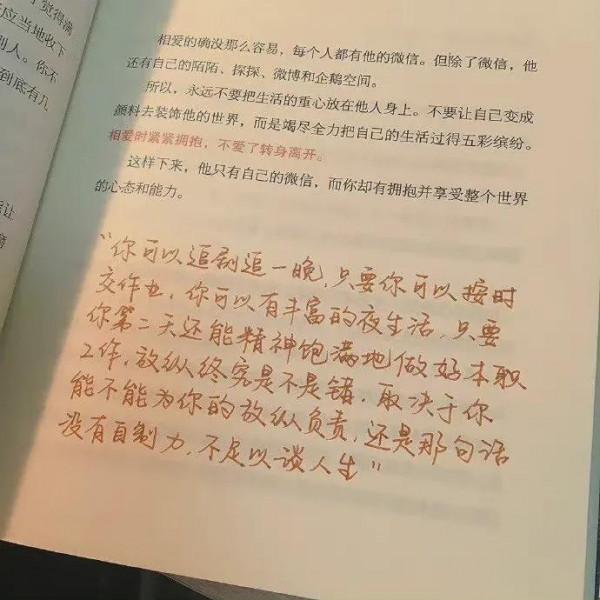 了觉得满
应当地收下
别人。你不
到底有几
能让
相爱的确没那么容易，每个人都有他的微信。但除了微信，他
还有自己的陌陌、探探、微博和企鹅空间。
所以，永远不要把生活的重心放在他人身上。不要让自己变成
颜料去装饰他的世界，而是竭尽全力把自己的生活过得五彩缤纷。
相爱时紧紧拥抱，不爱了转身离开。
这样下来，他只有自己的微信，而你却有拥抱并享受整个世界
的心态和能力。
“你可以追剧追一晚，只要你可以按时
交作业，你可以有丰富的夜生活，只要
你第二天还能精神饱满地做好本职
工作，放纵终究是不是错，取决于你
能不能为你的放纵负责，还是那句话
没有自制力，不足以谈人生”